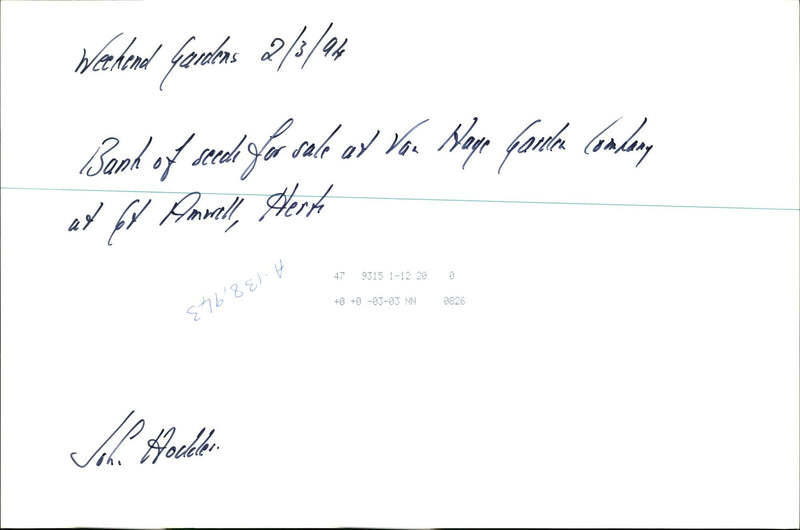 Weekend Gardens 2/3/94
Bank of seeds for sale at Van Hage Garden Company
at Gt Amwell, Herts
A-138,943
47 9315 1-12 20 0
+0 +0 -03-03 NN 0826
John Hodder.